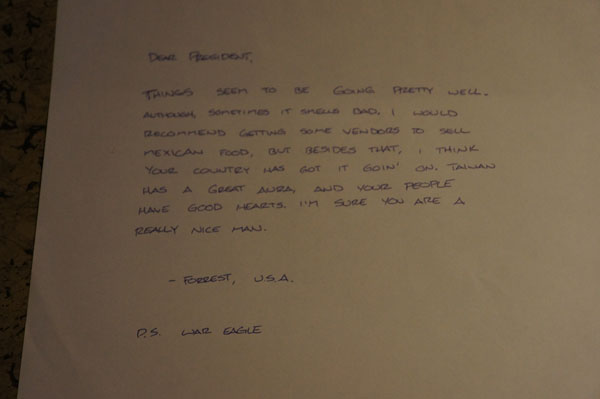 DEAR PRESIDENT,
THINGS SEEM TO BE GOING PRETTY WELL.
ALTHOUGH, SOMETIMES IT SMELLS BAD. I WOULD
RECOMMEND GETTING SOME VENDORS TO SELL
MEXICAN FOOD, BUT BESIDES THAT, I THINK
YOUR COUNTRY HAS GOT IT GOIN' ON. TAIWAN
HAS A GREAT AURA, AND YOUR PEOPLE
HAVE GOOD HEARTS. I'M SURE YOU ARE A
REALLY NICE MAN.
- FORREST, U.S.A.
P.S. WAR EAGLE